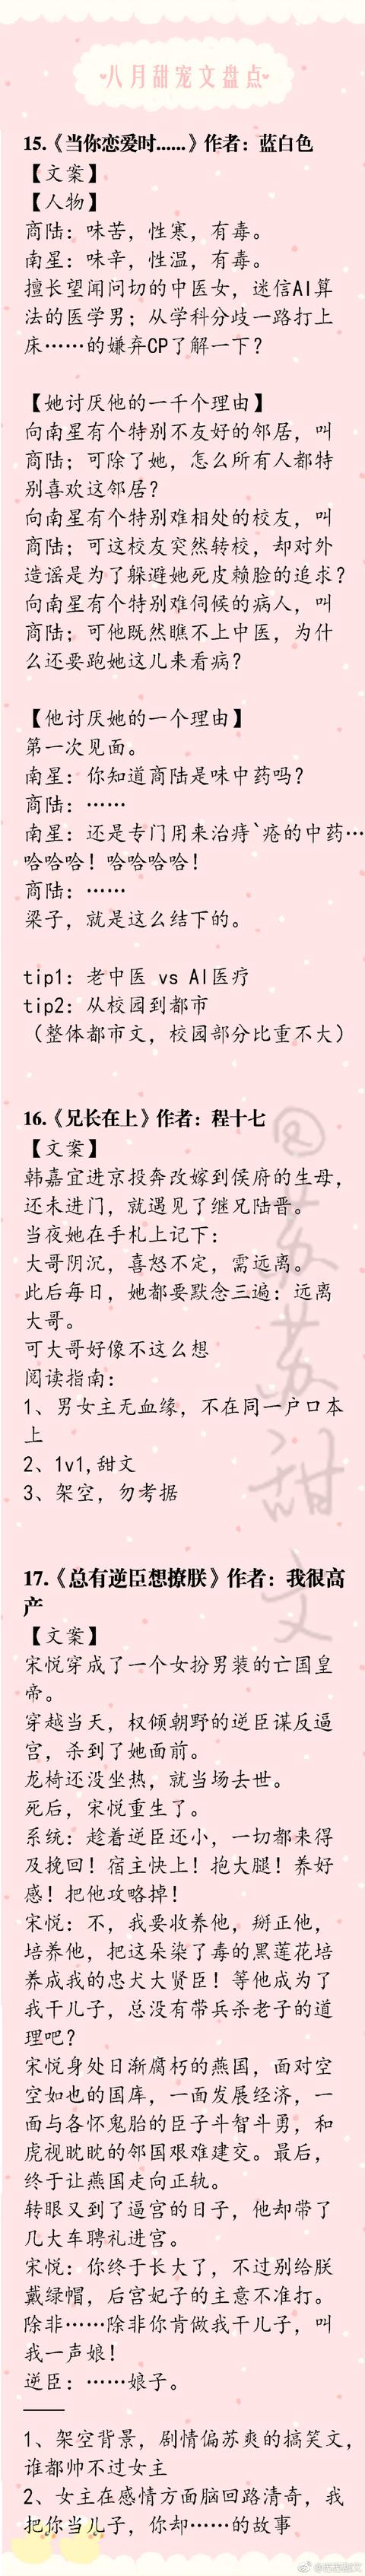 八月甜宠文盘点
15.《当你恋爱时……》作者：蓝白色
【文案】
【人物】
商陆：味苦，性寒，有毒。
南星：味辛，性温，有毒。
擅长望闻问切的中医女，迷信AI算
法的医学男；从学科分歧一路打上
床……的嫌弃CP了解一下？
【她讨厌他的一千个理由】
向南星有个特别不友好的邻居，叫
商陆；可除了她，怎么所有人都特
别喜欢这邻居？
向南星有个特别难相处的校友，叫
商陆；可这校友突然转校，却对外
造谣是为了躲避她死皮赖脸的追求？
向南星有个特别难伺候的病人，叫
商陆；可他既然瞧不上中医，为什
么还要跑她这儿来看病？
【他讨厌她的一个理由】
第一次见面。
南星：你知道商陆是味中药吗？
商陆：……
南星：还是专门用来治痔`疮的中药…
哈哈哈！哈哈哈哈！
商陆：……
梁子，就是这么结下的。
tip1：老中医 vs AI医疗
tip2：从校园到都市
（整体都市文，校园部分比重不大）
16.《兄长在上》作者：程十七
【文案】
韩嘉宜进京投奔改嫁到侯府的生母，
还未进门，就遇见了继兄陆晋。
当夜她在手札上记下：
大哥阴沉，喜怒不定，需远离。
此后每日，她都要默念三遍：远离
大哥。
可大哥好像不这么想
阅读指南：
1、男女主无血缘，不在同一户口本
上
2、1v1,甜文
3、架空，勿考据
17.《总有逆臣想撩朕》作者：我很高
产
【文案】
宋悦穿成了一个女扮男装的亡国皇
帝。
穿越当天，权倾朝野的逆臣谋反逼
宫，杀到了她面前。
龙椅还没坐热，就当场去世。
死后，宋悦重生了。
系统：趁着逆臣还小，一切都来得
及挽回！宿主快上！抱大腿！养好
感！把他攻略掉！
宋悦：不，我要收养他，掰正他，
培养他，把这朵染了毒的黑莲花培
养成我的忠犬大贤臣！等他成为了
我干儿子，总没有带兵杀老子的道
理吧？
宋悦身处日渐腐朽的燕国，面对空
空如也的国库，一面发展经济，一
面与各怀鬼胎的臣子斗智斗勇，和
虎视眈眈的邻国艰难建交。最后，
终于让燕国走向正轨。
转眼又到了逼宫的日子，他却带了
几大车聘礼进宫。
宋悦：你终于长大了，不过别给朕
戴绿帽，后宫妃子的主意不准打。
除非……除非你肯做我干儿子，叫
我一声娘！
逆臣：……娘子。
——
1、架空背景，剧情偏苏爽的搞笑文，
谁都帅不过女主
2、女主在感情方面脑回路清奇，我
把你当儿子，你却……的故事